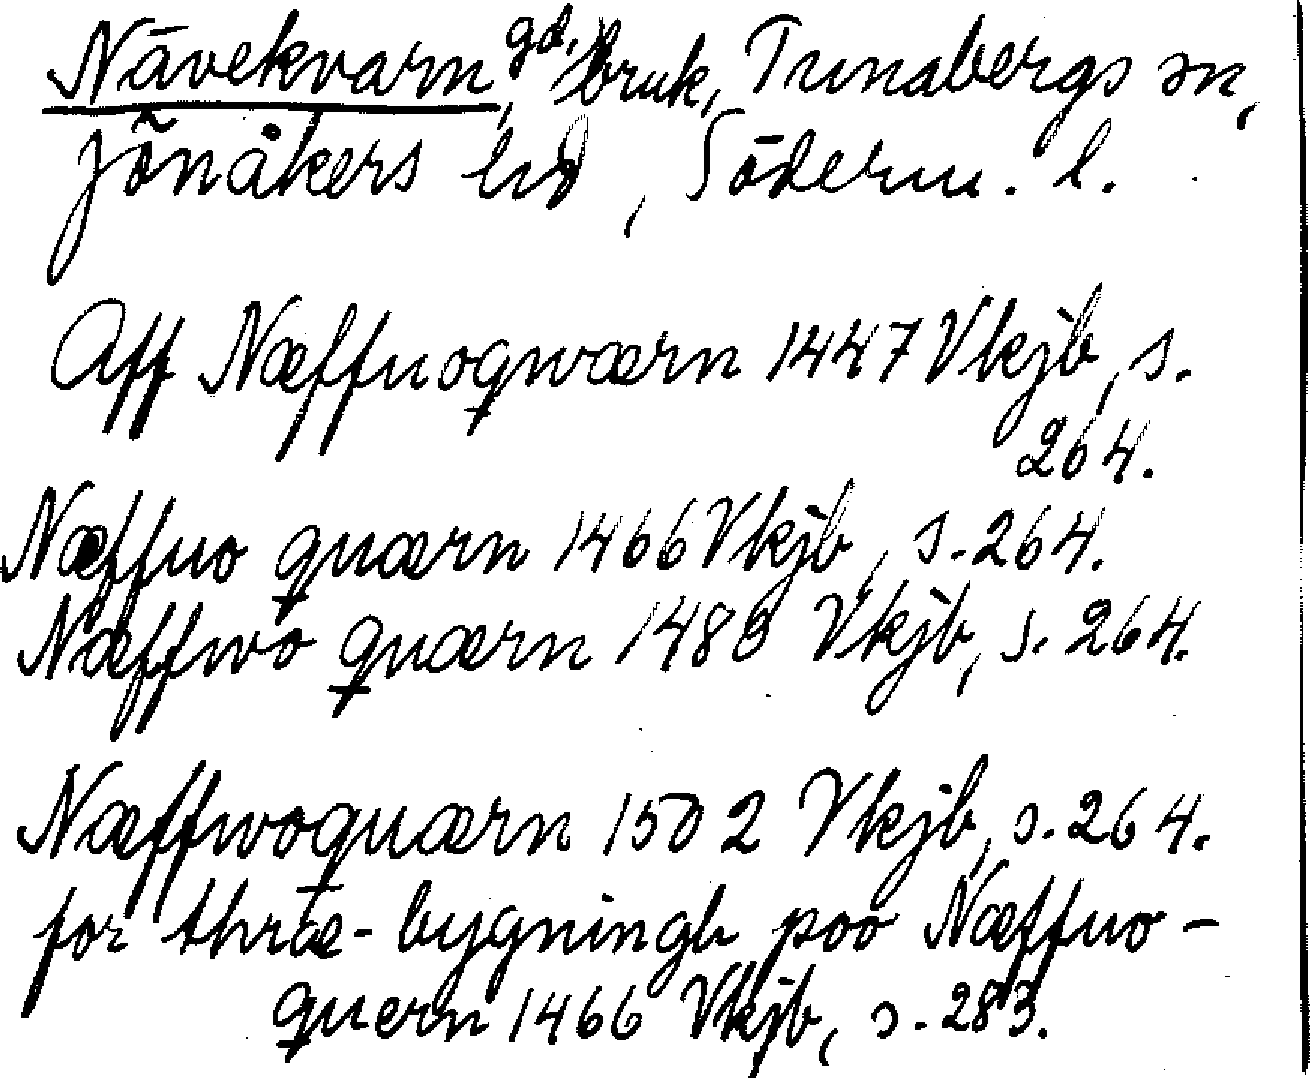 Nävekvarn, gd, bruk, Tunabergs sn,
Jönåkers hd, Söderm. l.
Aff Næffuoqwærn 1447 Vkjb, s.
264.
Næffuo quærn 1466 Vkjb, s. 264.
Næffwo quærn 1483 Vkjb, s. 264.
Næffwoquærn 1502 Vkjb, s. 264.
for thræ-bygningh poo Næffuo-
quern 1466 Vkjb, s. 283.